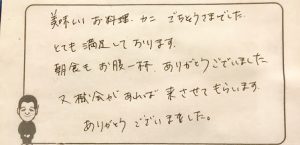 美味しいお料理、カニ ごちそうさまでした。
とても満足しております。
朝食もお腹一杯、ありがとうございました
又機会があれば来させてもらいます。
ありがとうございました。